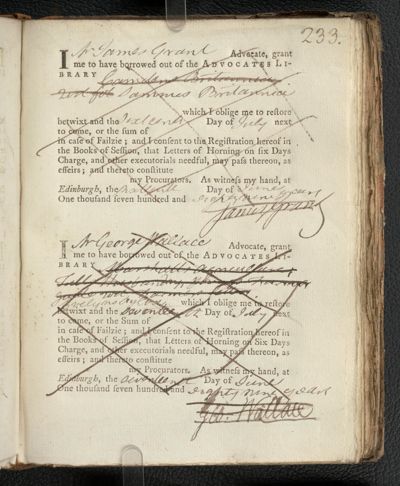 233.
I Mr James Grant Advocate, grant
me to have borrowed out of the ADVOCATES LI-
BRARY Camdens Britannica
Sammes Britannica
which I oblige me to reſtore
betwixt and the Day of July next
to come, or the ſum of
in caſe of Failzie; and I conſent to the Regiſtration hereof in
the Books of Seſſion, that Letters of Horning on ſix Days
Charge, and other executorials needful, may paſs thereon, as
effeirs; and thereto conſtitute
my Procurators. As witneſs my hand, at
Edinburgh, the Day of June
One thouſand ſeven hundred and eighty nine years
James Grant
I Mr George Wallace Advocate, grant
me to have borrowed out of the ADVOCATES LI-
BRARY Marshall's agriculture,
which I oblige me to reſtore
betwixt and the Day of July next
to come, or the Sum of
in caſe of Failzie; and I conſent to the Regiſtration hereof in
the Books of Seſſion, that Letters of Horning on Six Days
Charge, and other executorials needful, may paſs thereon, as
effeirs; and thereto conſtitute
my Procurators. As witneſs my hand, at
Edinburgh, the Day of June
One thouſand ſeven hundred and eighty nine years
Geo. Wallace